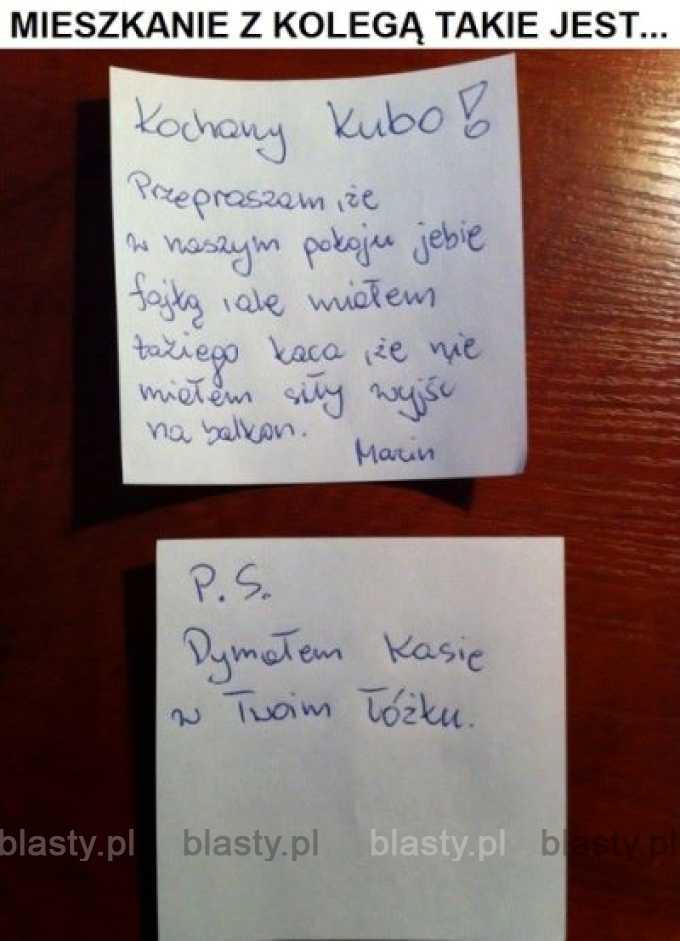 MIESZKANIE Z KOLEGĄ TAKIE JEST...
Kochany Kubo!
Przepraszam, że
w naszym pokoju jebie
fajką, ale miałem
takiego kaca, że nie
miałem siły wyjść
na balkon.
Marcin
P.S.
Dymałem Kasię
w Twoim łóżku.
blasty.pl blasty.pl blasty.pl blasty.pl